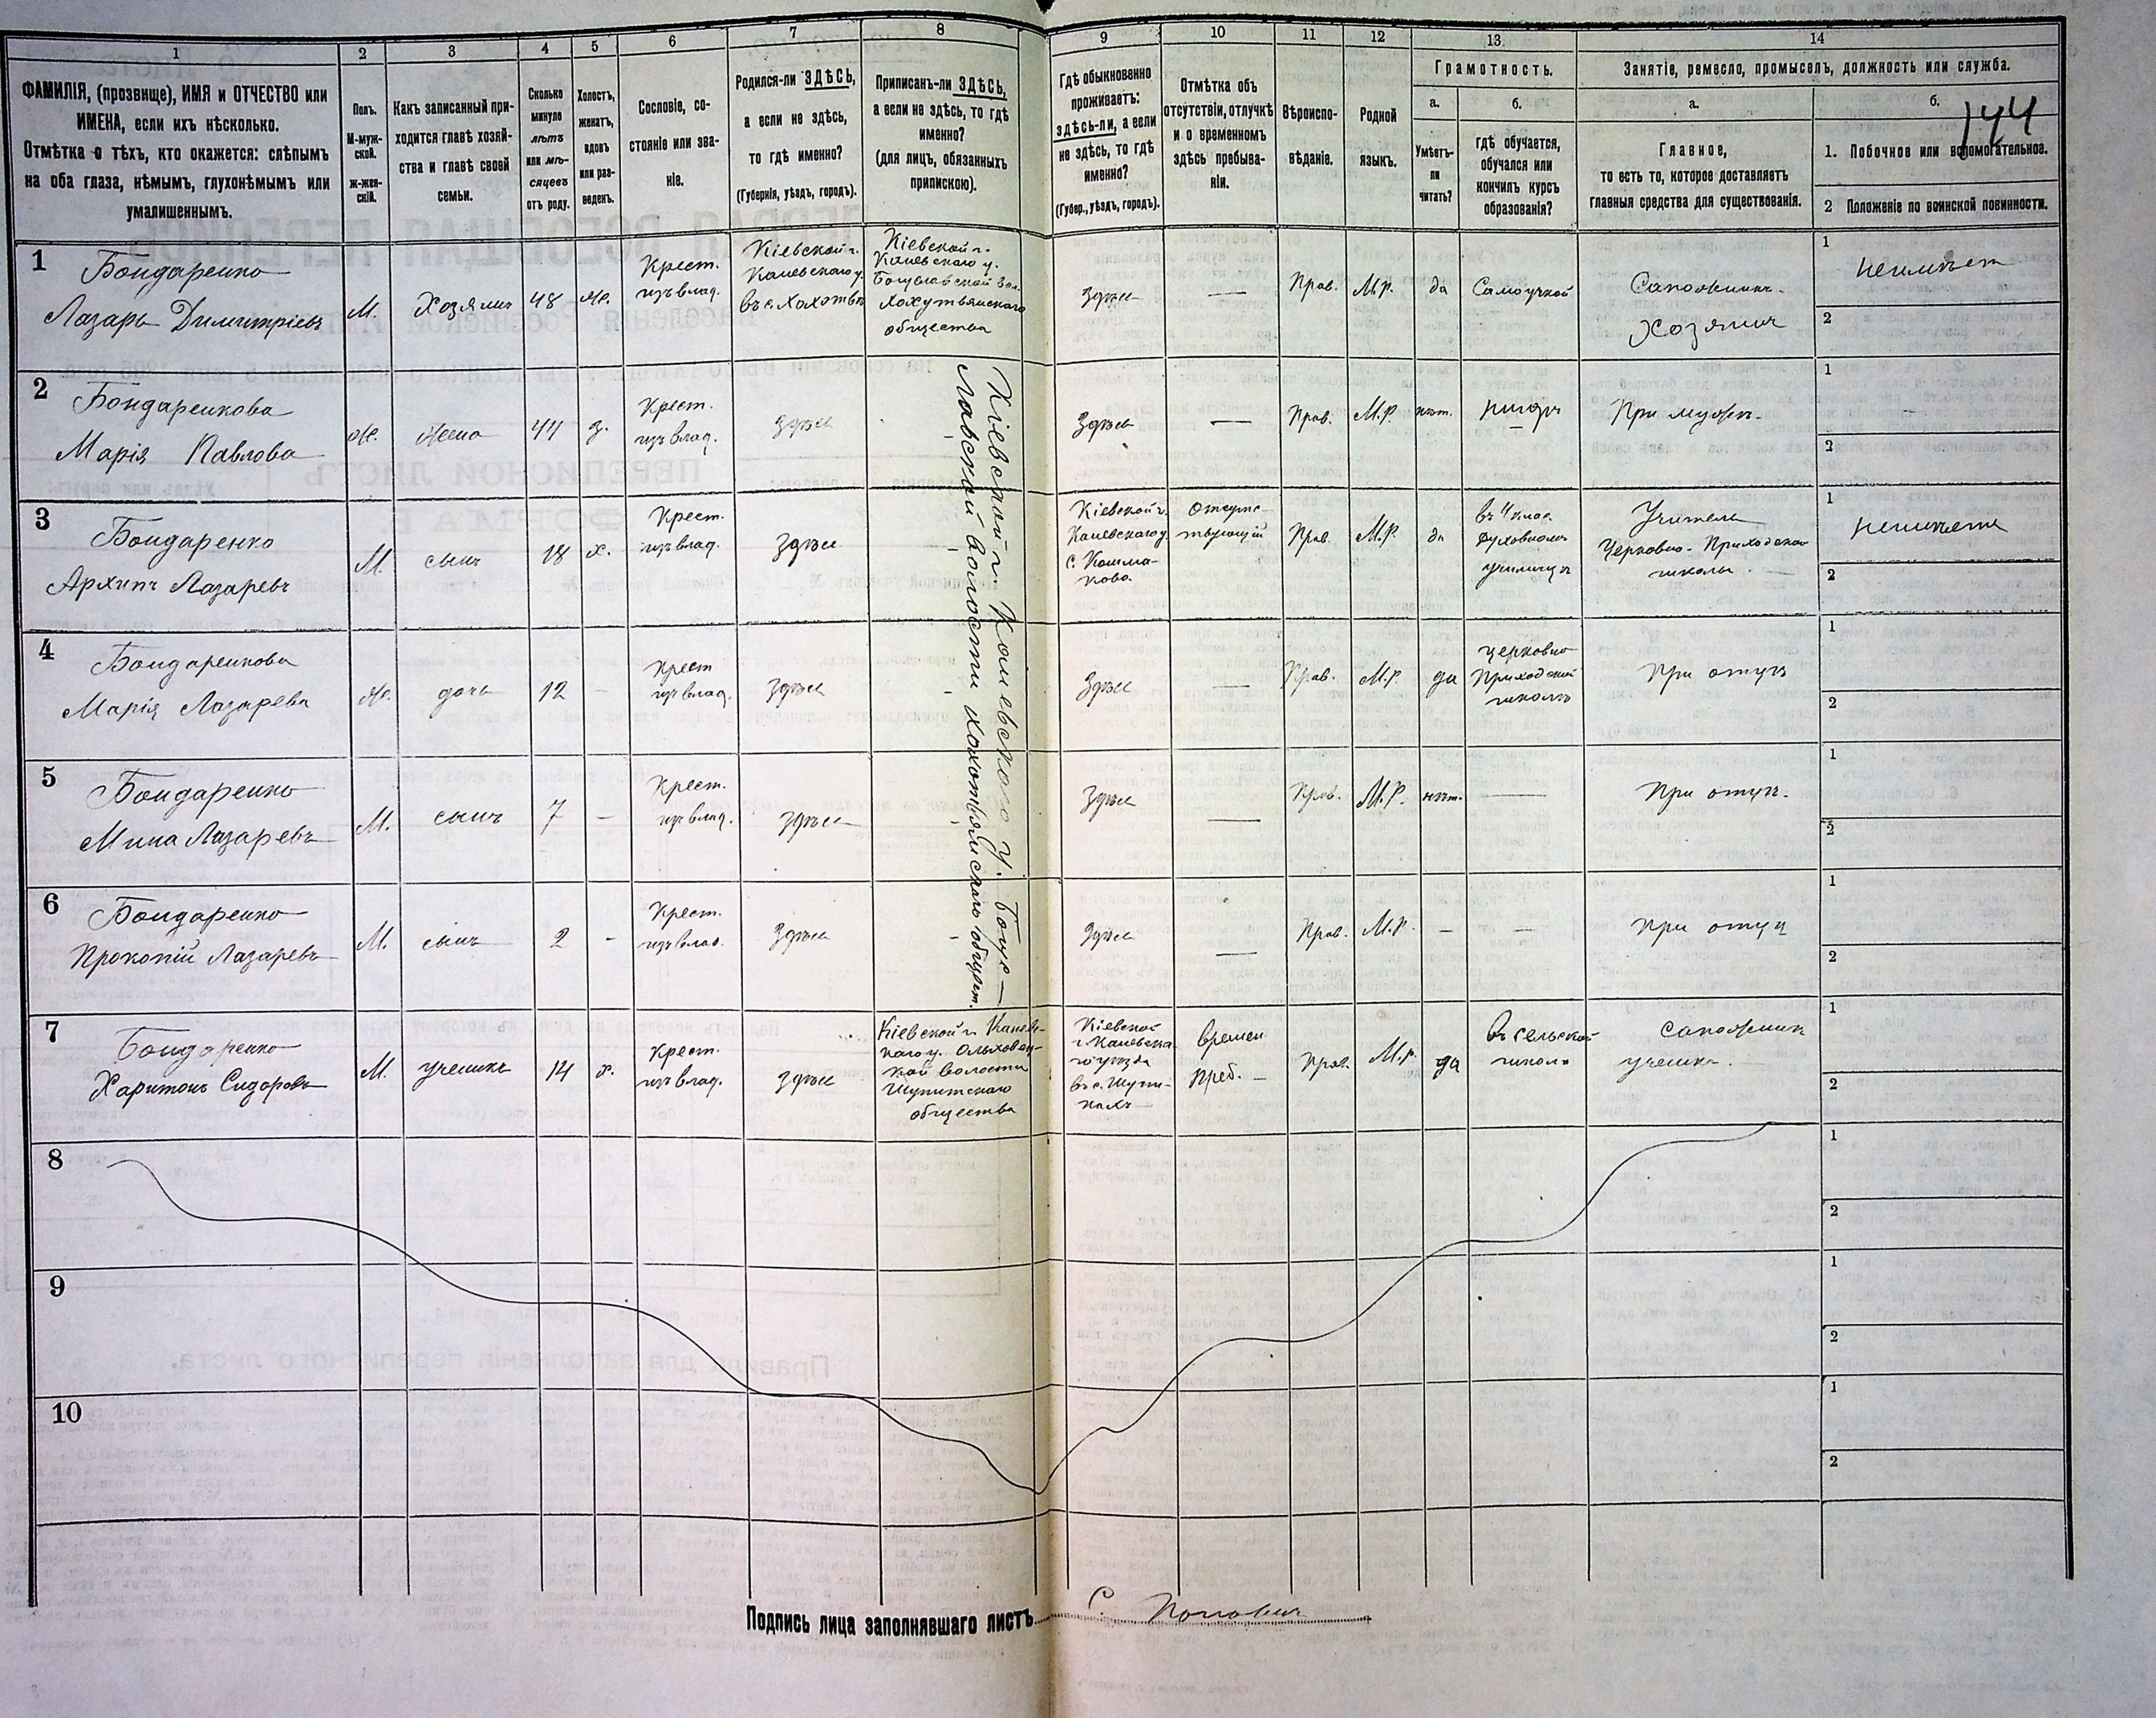 1
2
3
4
5
6
7
8
9
10
11
12
13
14
ФАМИЛІЯ, (прозвище), ИМЯ и ОТЧЕСТВО или
ИМЕНА, если ихъ нѣсколько.
Отмѣтка о тѣхъ, кто окажется: слѣпымъ
на оба глаза, нѣмымъ, глухонѣмымъ или
умалишеннымъ.
Полъ.
М-муж-
ской.
Ж-жен-
скій.
Какъ записанный при-
ходится главѣ хозяй-
ства и главѣ своей
семьи.
Сколько
минуло
лѣтъ
или мѣ-
сяцевъ
отъ роду.
Холостъ,
женатъ,
вдовъ
или раз-
веденъ.
Сословіе, со-
стояніе или зва-
ніе.
Родился-ли ЗДѢСЬ,
а если не здѣсь,
то гдѣ именно?
(Губернія, уѣздъ, городъ).
Приписанъ-ли ЗДѢСЬ,
а если не здѣсь, то гдѣ
именно?
(для лицъ, обязанныхъ
припискою).
Гдѣ обыкновенно
проживаетъ:
здѣсь-ли, а если
не здѣсь, то гдѣ
именно?
(Губер., уѣздъ, городъ).
Отмѣтка объ
отсутствіи, отлучкѣ
и о временномъ
здѣсь пребыва-
ніи.
Вѣроиспо-
вѣданіе.
Родной
языкъ.
Грамотность.
а.
Умѣетъ-
ли
читать?
б.
гдѣ обучается,
обучался или
кончилъ курсъ
образованія?
Занятіе, ремесло, промыселъ, должность или служба.
а.
Главное,
то есть то, которое доставляетъ
главныя средства для существованія.
б.
144
1. Побочное или вспомогательное.
2 Положеніе по воинской повинности.
1
Бондаренко
Лазарь Димитріевъ
М.
Хозяинъ
48
Же.
Крест.
изъ влад.
Кіевской г.
Каневскаго у.
въ с. Хохотвѣ
Кіевской г.
Каневскаго у.
Богуславской вол.
Хохутвянскаго
общества
Здѣсь
—
Прав.
М.Р.
да
Самоучкой
Сапожникъ.
Хозяинъ
1
неимѣет
2
2
Бондаренкова
Марія Павлова
Же.
жена
44
з.
Крест.
изъ влад.
здѣсь
Кіевской г. Каневскаго у. Богус—
лавской волости Хохотвянскаго общест.
Здѣсь
—
Прав.
М.Р.
нѣт.
нигдѣ
При мужѣ.
1
2
3
Бондаренко
Архипъ Лазаревъ
М.
сынъ
18
х.
Крест.
изъ влад.
Здѣсь
Кіевской г.
Каневскаго у.
с. Кошма-
кова
отсутс-
твующій
Прав.
М.Р.
да
въ 4 клас.
духовномъ
училищѣ
Учитель
Церковно-Приходской
школы.
1
неимѣетъ
2
4
Бондаренкова
Марія Лазарева
Же.
дочь
12
-
Крест
изъ влад.
Здѣсь
Здѣсь
—
Прав.
М.Р
да
церковно
Приходской
школѣ
При отцѣ
1
2
5
Бондаренко
Мина Лазаревъ
М.
сынъ
7
-
Крест.
изъ влад.
здѣсь
Здѣсь
—
Прав.
М.Р.
нѣт.
—
При отцѣ.
1
2
6
Бондаренко
Прокопій Лазаревъ
М.
сынъ
2
-
Крест.
изъ влад.
Здѣсь
Здѣсь
—
Прав.
М.Р.
—
—
При отцѣ
1
2
7
Бондаренко
Харитонъ Сидоровъ
М.
ученикъ
14
х.
Крест.
изъ влад.
здѣсь
Кіевской г. Канев-
скаго у. Ольховец-
кой волости
общества
Кіевской
г. Каневска-
го уѣзда
времен.
Преб. —
Прав.
М.Р.
да
въ сельской
школѣ
сапожник
ученикъ.
1
2
8
1
2
9
1
2
10
1
2
Подпись лица заполнявшаго листъ
С. Поповичъ